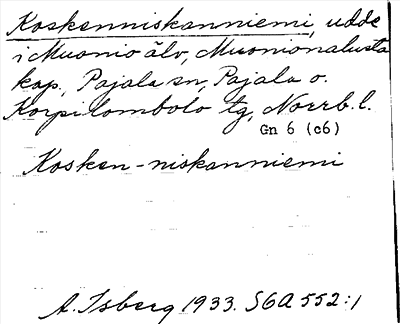 Koskenniskanniemi, udde
i Muonio älv, Muonionalusta
kap, Pajala sn, Pajala o.
Korpilombolo tg, Norrb. l.
Gn 6 (c6)
Kosken-niskanniemi
A. Isberg 1933. SGA 552:1